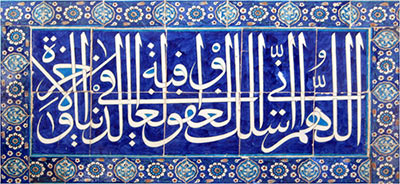 اللّٰهم انّى اسئلك العفو والعافية فى الدنيا والاخرة